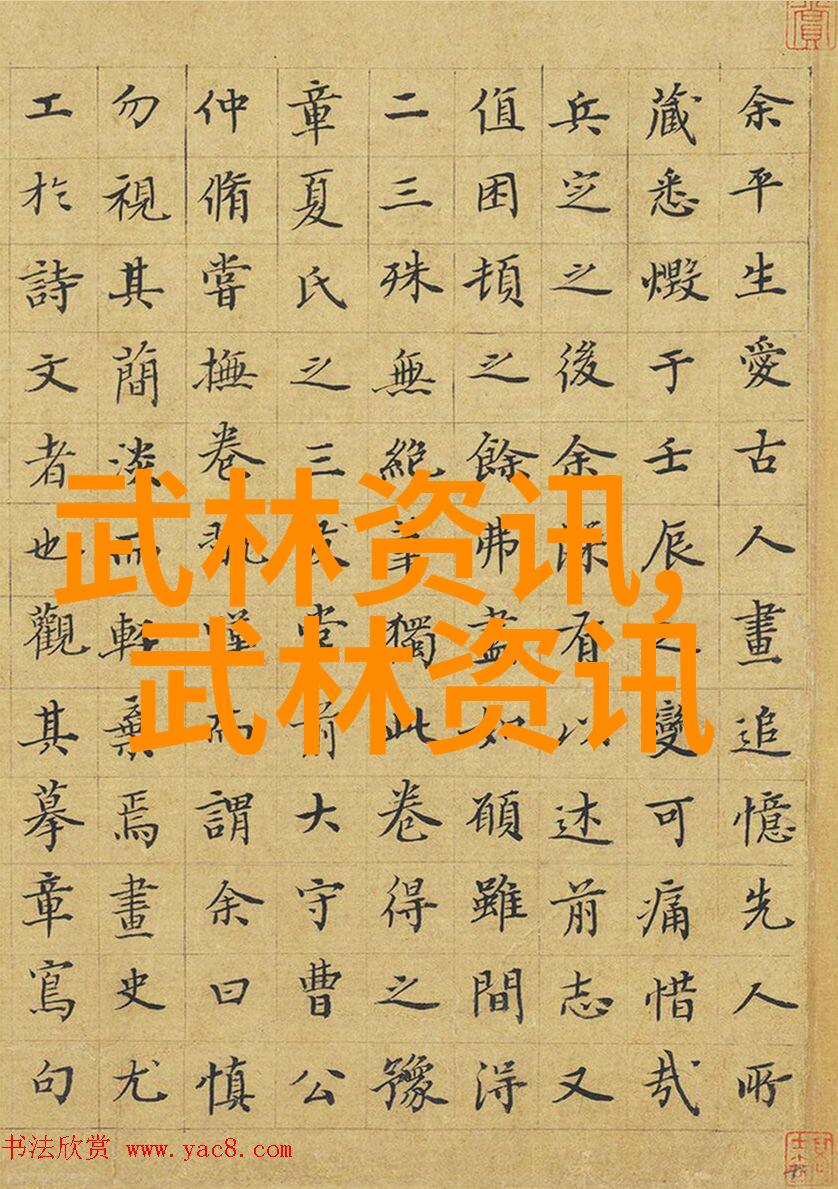 余平生愛古人畫追憶先人所
藏悉燬于壬辰之變可痛惜哉
兵定之後余深有以述前志又
值困頓之餘弗盡如願雖間得
二三殊無絶筆獨此卷得之豫
章夏氏之三堂前大守曹公
仲脩嘗撫卷而謂余曰慎
勿視其簡淡而輕棄焉畫史尤
工於詩文者也觀其摹章寫句
武林资讯,
武林资讯
书法欣赏 www.yac8.com